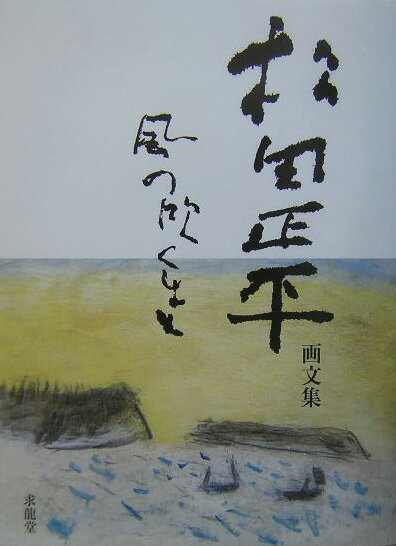 松田正平
画文集
風の吹くまま
求龍堂